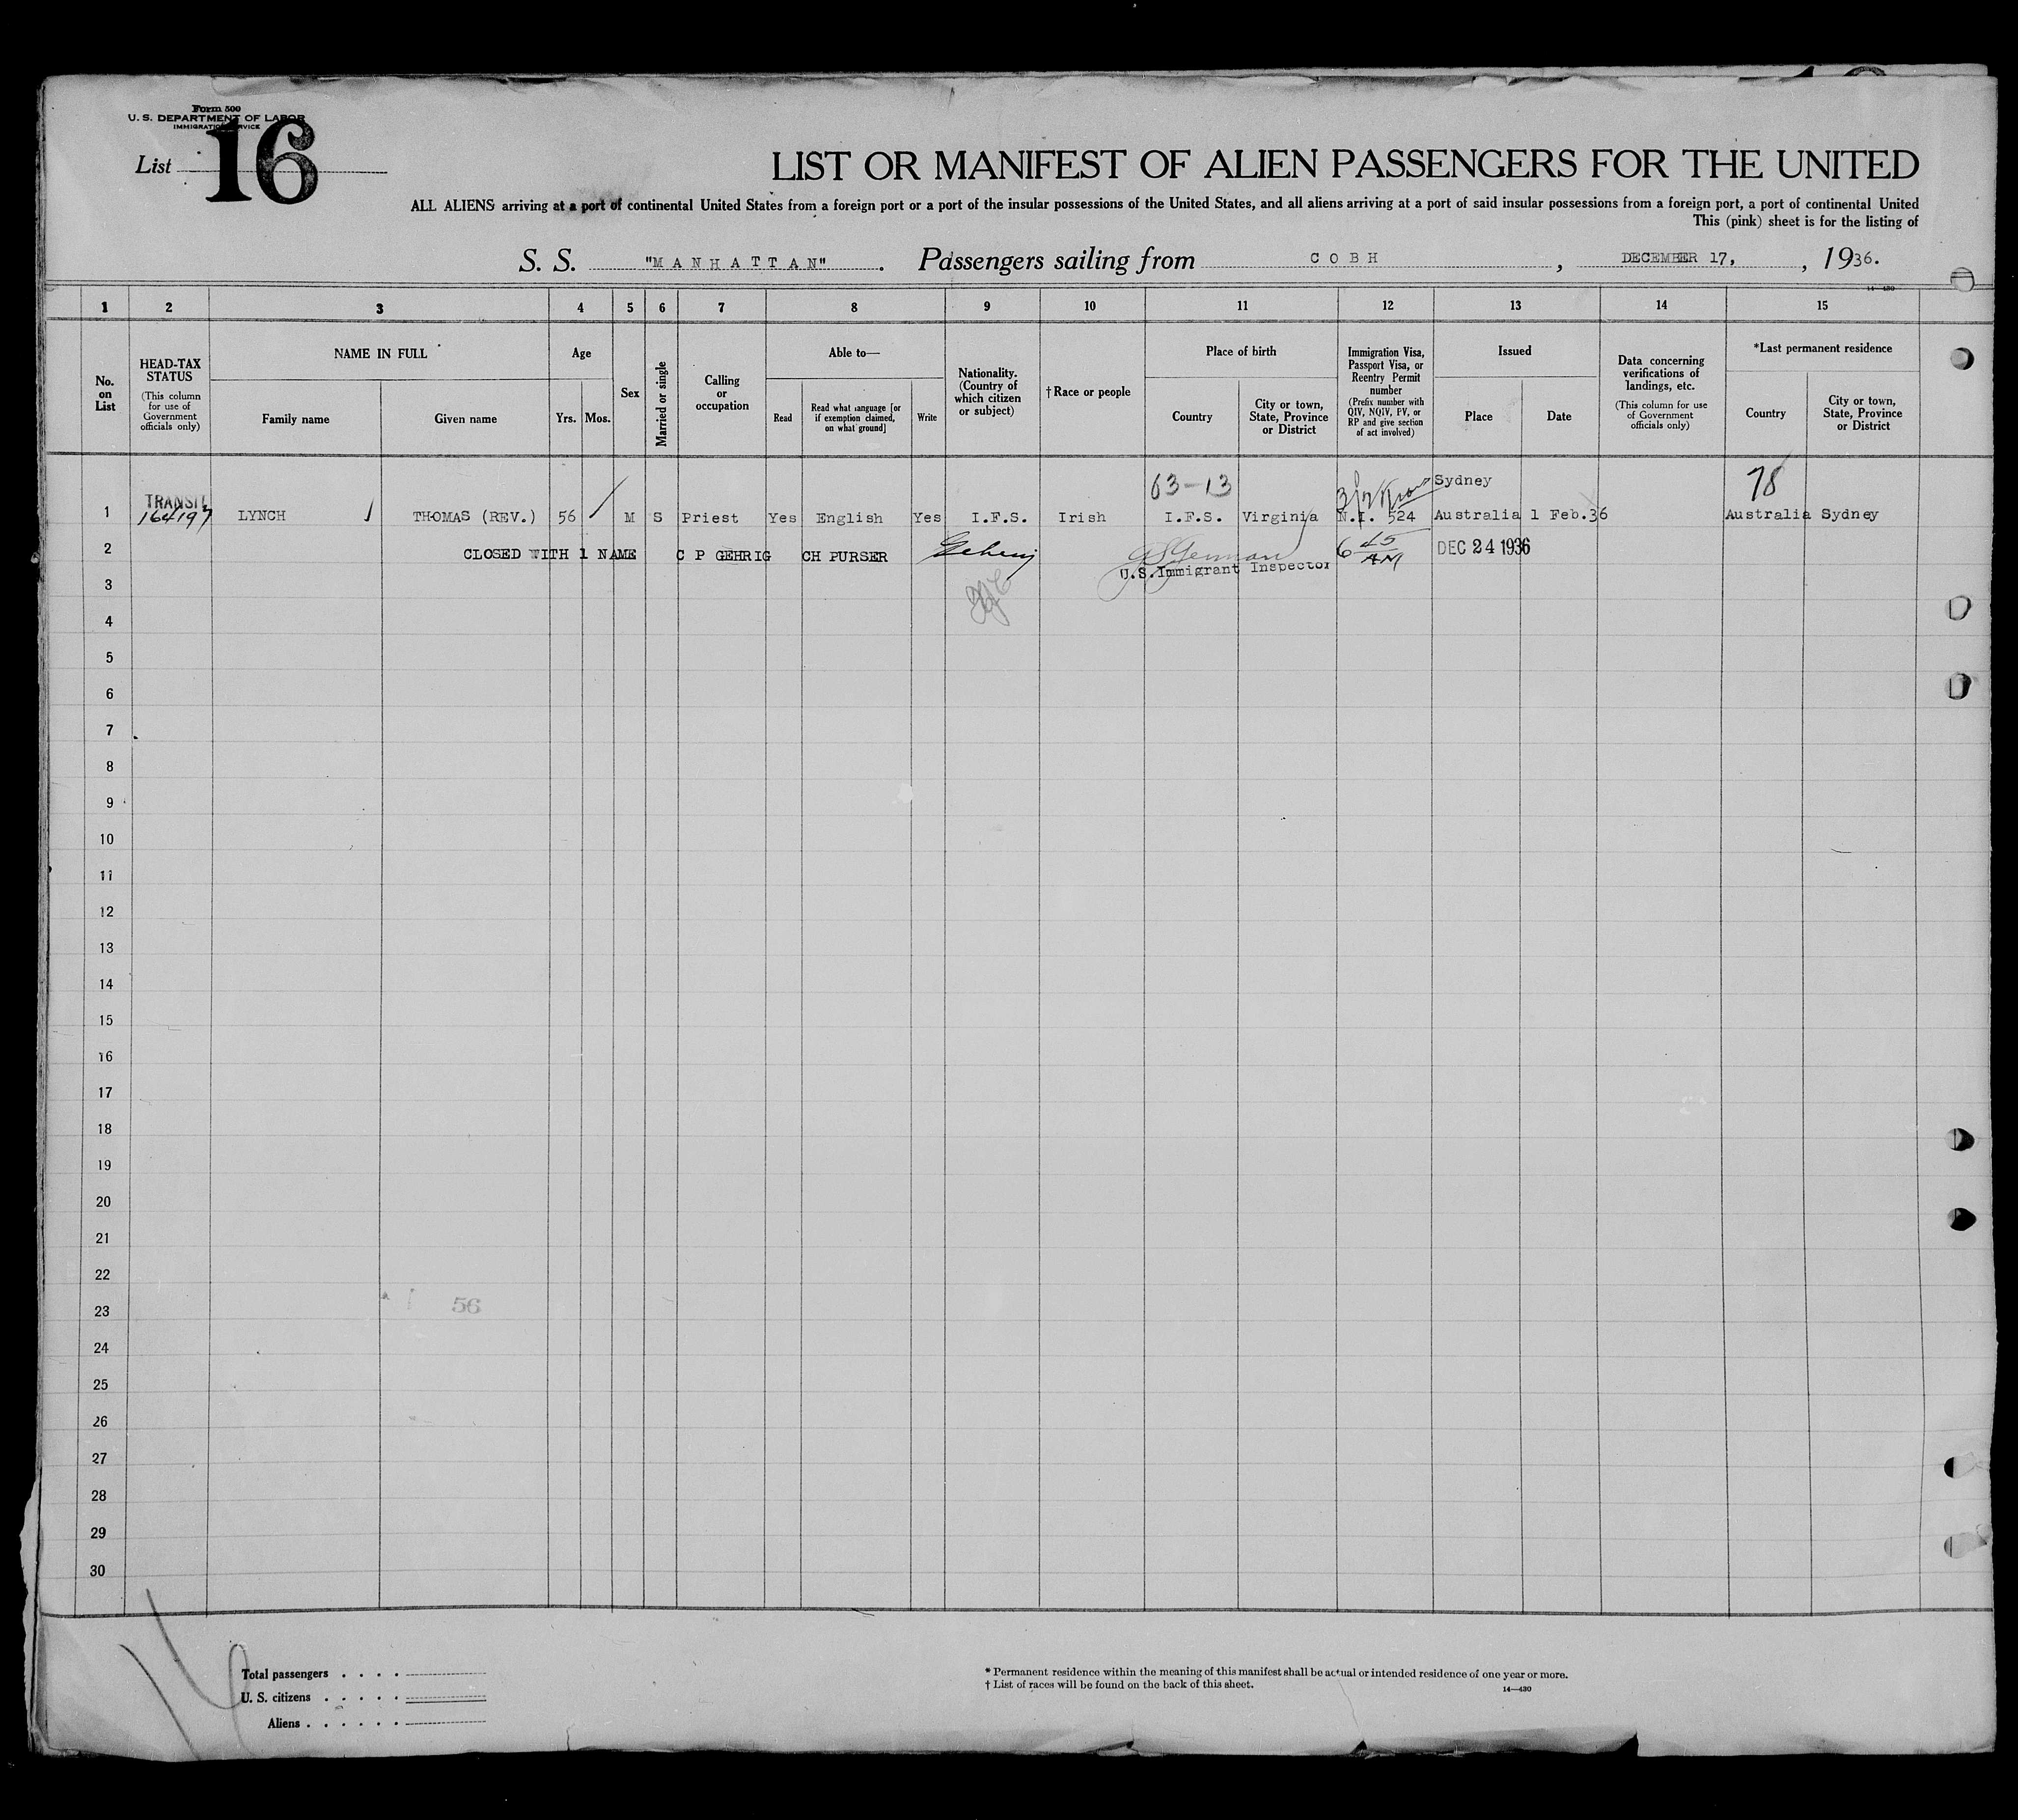 Form 500
U. S. DEPARTMENT OF LABOR
IMMIGRATION SERVICE
List 16
LIST OR MANIFEST OF ALIEN PASSENGERS FOR THE UNITED
ALL ALIENS arriving at a port of continental United States from a foreign port or a port of the insular possessions of the United States, and all aliens arriving at a port of said insular possessions from a foreign port, a port of continental United
This (pink) sheet is for the listing of
S. S. "MANHATTAN" . Passengers sailing from COBH , DECEMBER 17, , 1936.
14—430
1 2 3 4 5 6 7 8 9 10 11 12 13 14 15
No. on List
HEAD-TAX STATUS
(This column for use of Government officials only)
NAME IN FULL
Family name
Given name
Age
Yrs.
Mos.
Sex
Married or single
Calling or occupation
Able to—
Read
Read what language [or if exemption claimed, on what ground]
Write
Nationality. (Country of which citizen or subject)
† Race or people
Place of birth
Country
City or town, State, Province or District
Immigration Visa, Passport Visa, or Reentry Permit number
(Prefix number with QIV, NQIV, PV, or RP and give section of act involved)
Issued
Place
Date
Data concerning verifications of landings, etc.
(This column for use of Government officials only)
*Last permanent residence
Country
City or town, State, Province or District
63-13 Sydney 78
TRANSIT
1 164197 LYNCH THOMAS (REV.) 56 M S Priest Yes English Yes I.F.S. Irish I.F.S. Virginia N.I. 524 Australia 1 Feb.36 Australia Sydney
2 CLOSED WITH 1 NAME C P GEHRIG CH PURSER Gehrig 6 45 AM DEC 24 1936
U.S. Immigrant Inspector
3
4
5
6
7
8
9
10
11
12
13
14
15
16
17
18
19
20
21
22
23 56
24
25
26
27
28
29
30
Total passengers . . . .
U. S. citizens . . . . .
Aliens . . . . . .
* Permanent residence within the meaning of this manifest shall be actual or intended residence of one year or more.
† List of races will be found on the back of this sheet.
14—430